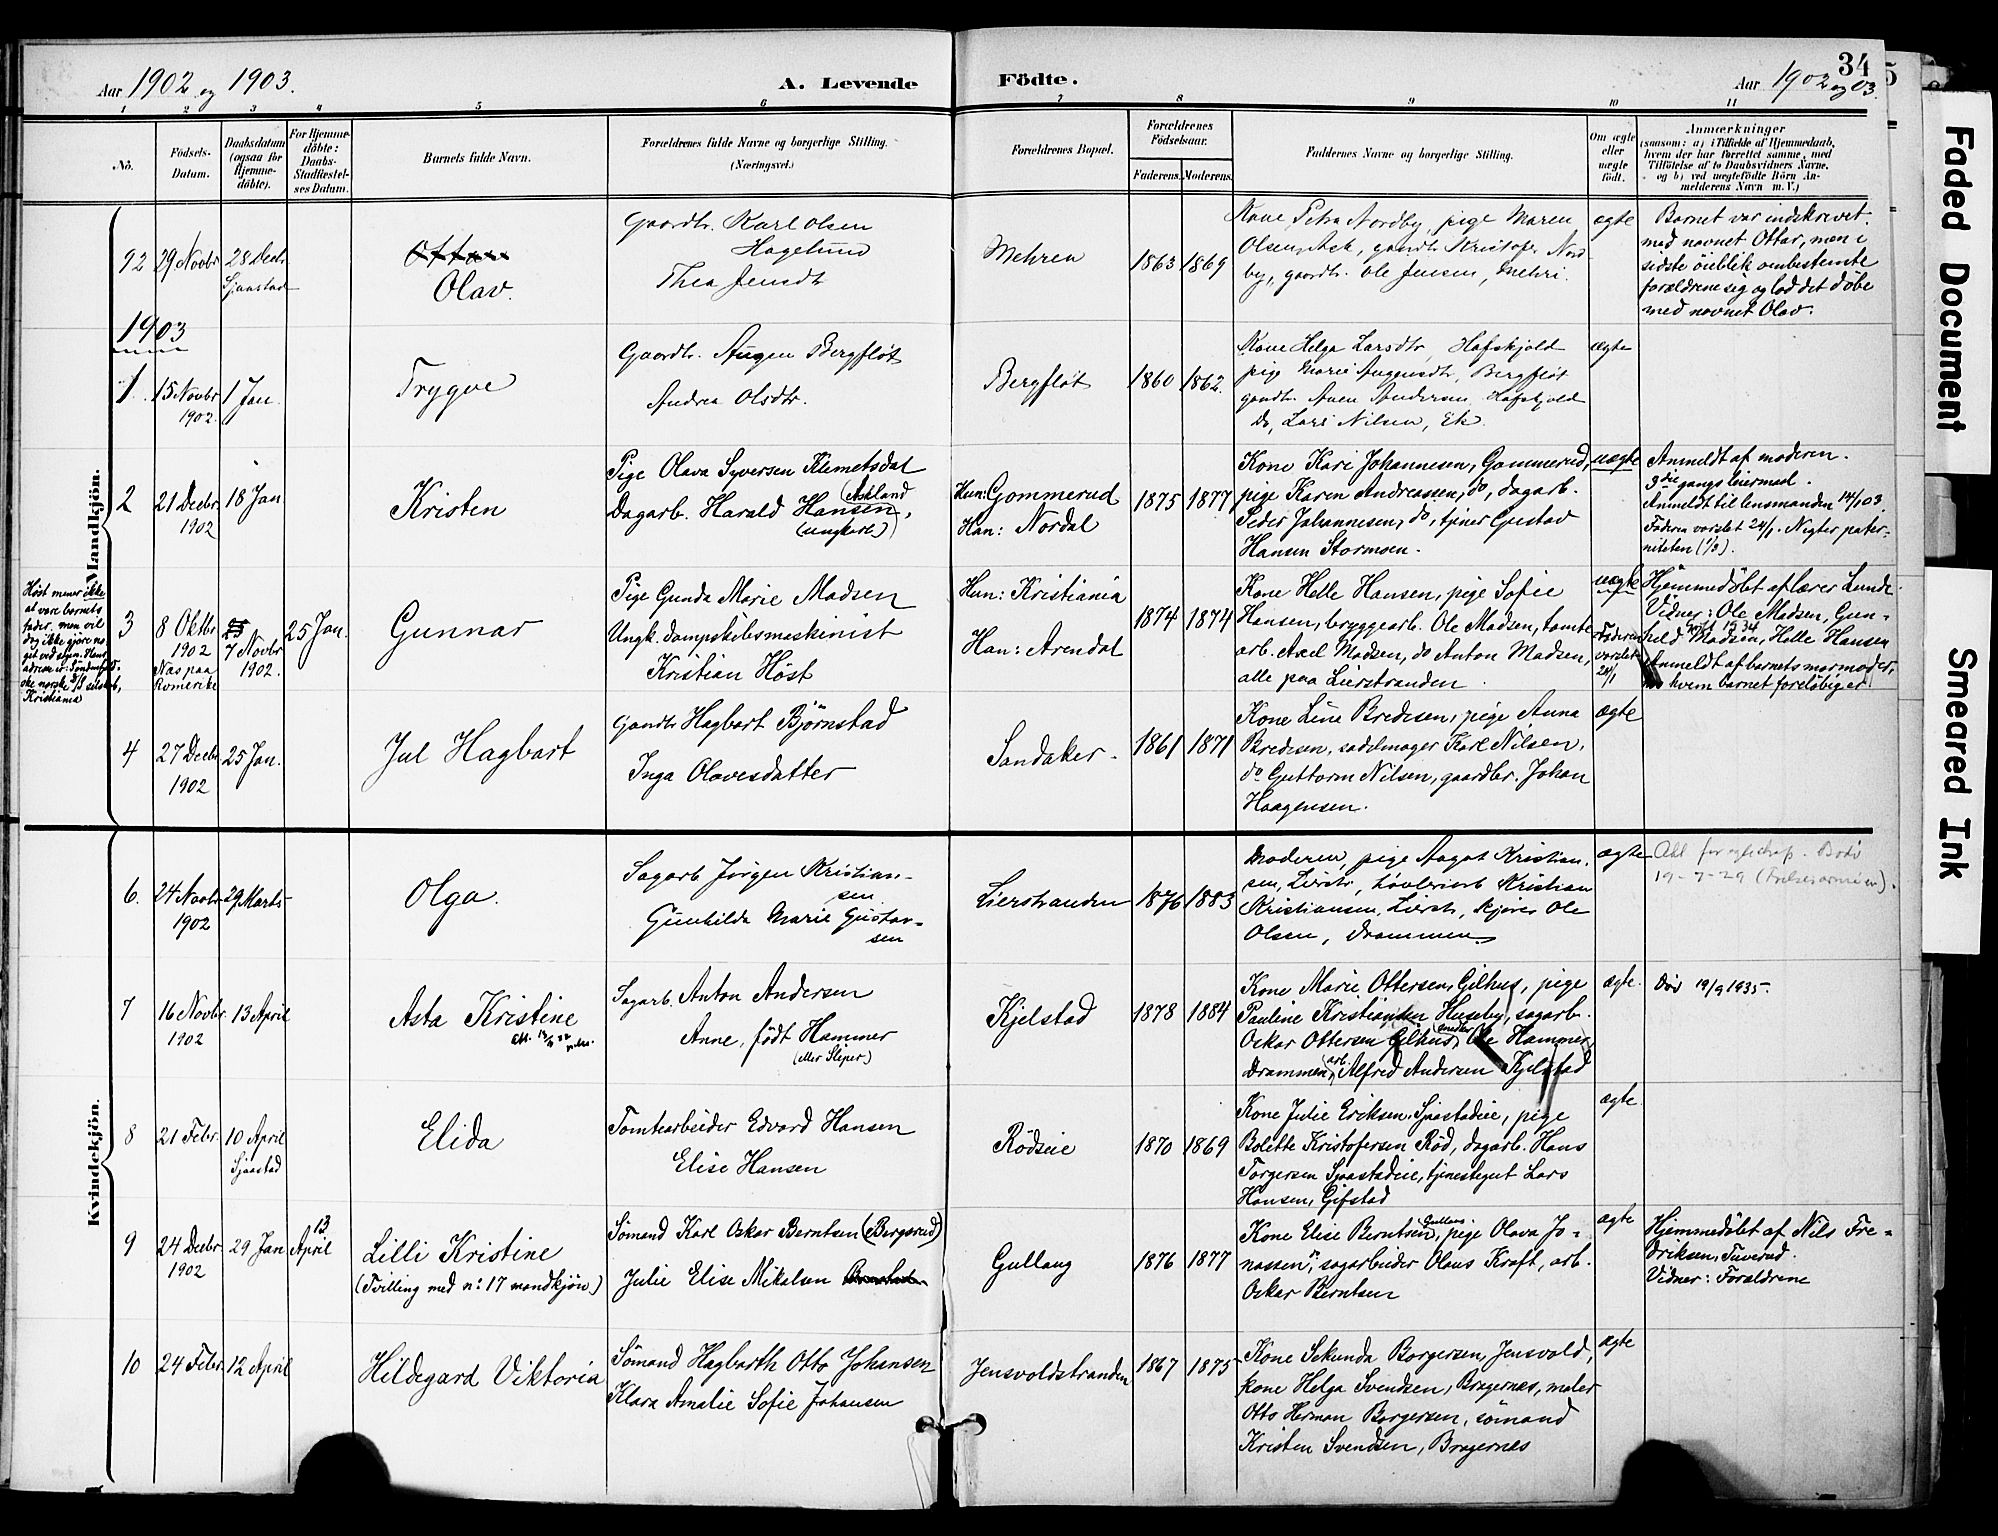 Aar 1902 og 1903.
A. Levende Födte.
Aar 1902 og 03.
34
1 2 3 4 5 6 7 8 9 10 11
No.
Födsels-Datum.
Daabsdatum (ogsaa for Hjemme-döbte).
For Hjemme-döbte: Daabs-Stadfæstel-ses Datum.
Barnets fulde Navn.
Forældrenes fulde Navne og borgerlige Stilling.
(Næringsvei.)
Forældrenes Bopæl.
Forældrenes Födselsaar.
Faderens. Moderens.
Faddernes Navne og borgerlige Stilling.
Om ægte eller uægte födt.
Anmærkninger
(saasom: a) i Tilfælde af Hjemmedaab, hvem der har forrettet samme, med Tilföielse af to Daabsvidners Navne, og b) ved uægtefödte Börn Anmelderens Navn m. V.)
Mandkjön.
92
29 Novbr
28 Decbr
Sjaastad
Olav.
Gaardbr. Karl Olsen
Hagelund
Thea Jensdt
Mehren
1863 1869
Kone Petra Nordby, pige Maren
Olsen, Ask, gaardbr. Kristofer Nord-
by, gaardbr. Ole Jensen, Mehri.
ægte
Barnet var indskrevet
med navnet Ottar, men i
sidste öieblik ombestemte
forældrene sig og lod det döbe
med navnet Olav.
1903
1.
15 Novbr
1902.
1 Jan.
Trygve
Gaardbr. Augen Bergflöt
Andrea Olsdtr.
Bergflöt
1860 1862.
Kone Helga Larsdtr, Hafskjold
pige Marie Augensdtr, Bergflöt
gaardbr. Aven Andersen, Hafskjold
Do, Lars Nilsen, Ek.
ægte
2
21 Decbr
1902
18 Jan.
Kristen
Pige Olava Syversen Klemetsdal
Dagarb. Harald Hansen,
(Askland
(ungkarl)
Hun: Gommerud
Han: Nordal
1875 1877
Kone Kari Johannesen, Gommerud,
pige Karen Andreassen, do, dagarb.
Peder Johannesen, do, tjener Gustad
Hansen Stormoen.
uægte
Anmeldt af moderen.
3die gangs leiermaal.
Anmeldt til lensmanden 14/1 03.
Faderen varslet 24/1. Negter pater-
niteten (1/3).
Höst mener ikke
at være barnets
fader, men vil
dog ikke gjöre no-
get ved sagen. Hans
adresse er: Söndenfjeld-
ske norske D/S selskab,
Kristiania
3
8 Oktbr
1902
Næs paa
Romerike
7 Novbr
1902.
25 Jan.
Gunnar
Pige Gunda Marie Madsen
Ungk. dampskibsmaskinist
Kristian Höst
Hun: Kristiania
Han: Arendal
1874 1874
Kone Helle Hansen, pige Sofie
Hansen, bryggearb. Ole Madsen, tomte-
arb. Axel Madsen, do Anton Madsen,
alle paa Lierstranden.
uægte
Faderen
varslet
24/1
Hjemmedöbt af lærer Lunde
Vidner: Ole Madsen, Gun-
hild Madsen, Helle Hansen
Anmeldt af barnets mormoder,
hos hvem barnet forelöbig er
4
27 Decbr
1902
25 Jan.
Jul Hagbart
Gaardbr Hagbart Björnstad
Inga Olavesdatter
Sandaker.
1861 1871
Kone Lina Bredesen, pige Anna
Bredesen, sadelmager Karl Nilsen,
do Guttorm Nilsen, gaardbr. Johan
Haagensen.
ægte
Kvindekjön.
6.
24 Novbr
1902
29 Marts
Olga.
Sagarb Jörgen Kristian-
sen
Gunhilda Marie Gustav-
sen
Lierstranden
1876 1883
Moderen, pige Aagot Kristian-
sen, Lierstr, hövleriarb Kristian
Kristiansen, Lierstr, kjörer Ole
Olsen, Drammen
ægte
19-7-29
7
16 Novbr.
1902
13 April
Asta Kristine
Sagarb. Anton Andersen
Anne, födt Hammer
(eller Sleper)
Kjelstad
1878 1884
Kone Marie Ottersen, Gilhus, pige
Pauline Kristiansen Huseby, sagarb.
Oskar Ottersen Gilhus, Ole Hammer,
Drammen, arb. Alfred Andersen Kjelstad
ægte.
Död 19/9 1935.
8
21 Febr.
10 April
Sjaastad
Elida
Tomtearbeider Edvard Hansen
Elise Hansen
Rödseie
1870 1869
Kone Julie Eriksen, Sjaastadeie, pige
Bolette Kristofersen Röd, dagarb. Hans
Torgersen Sjaastadeie, tjenestegut Lars
Hansen, Gifstad
ægte.
9
24 Decbr
1902
29 Jan
13 April
Lilli Kristine
(Tvilling med no: 17 mandkjön.)
Sömand Karl Oskar Berntsen (Bergsrud)
Julie Elise Mikalsen
Gullaug
1876 1877
Kone Elise Berntsen, Gullaug, pige Olava Jo-
nassen, ", sagarbeider Olaus Kraft, arb.
Oskar Berntsen
ægte
Hjemmedöbt af Nils Fre-
driksen, Tuverud.
Vidner: Forældrene
10
24 Febr.
12 April
Hildegard Viktoria
Sömand Hagbarth Otto Johansen
Klara Amalie Sofie Johansen
Jensvoldstranden
1867 1875
Kone Sekunda Borgersen, Jensvold,
kone Helga Svendsen, Bragernes, maler
Otto Herman Borgersen, sömand
Kristen Svendsen, Bragernes
ægte
Faded Document
Smeared Ink